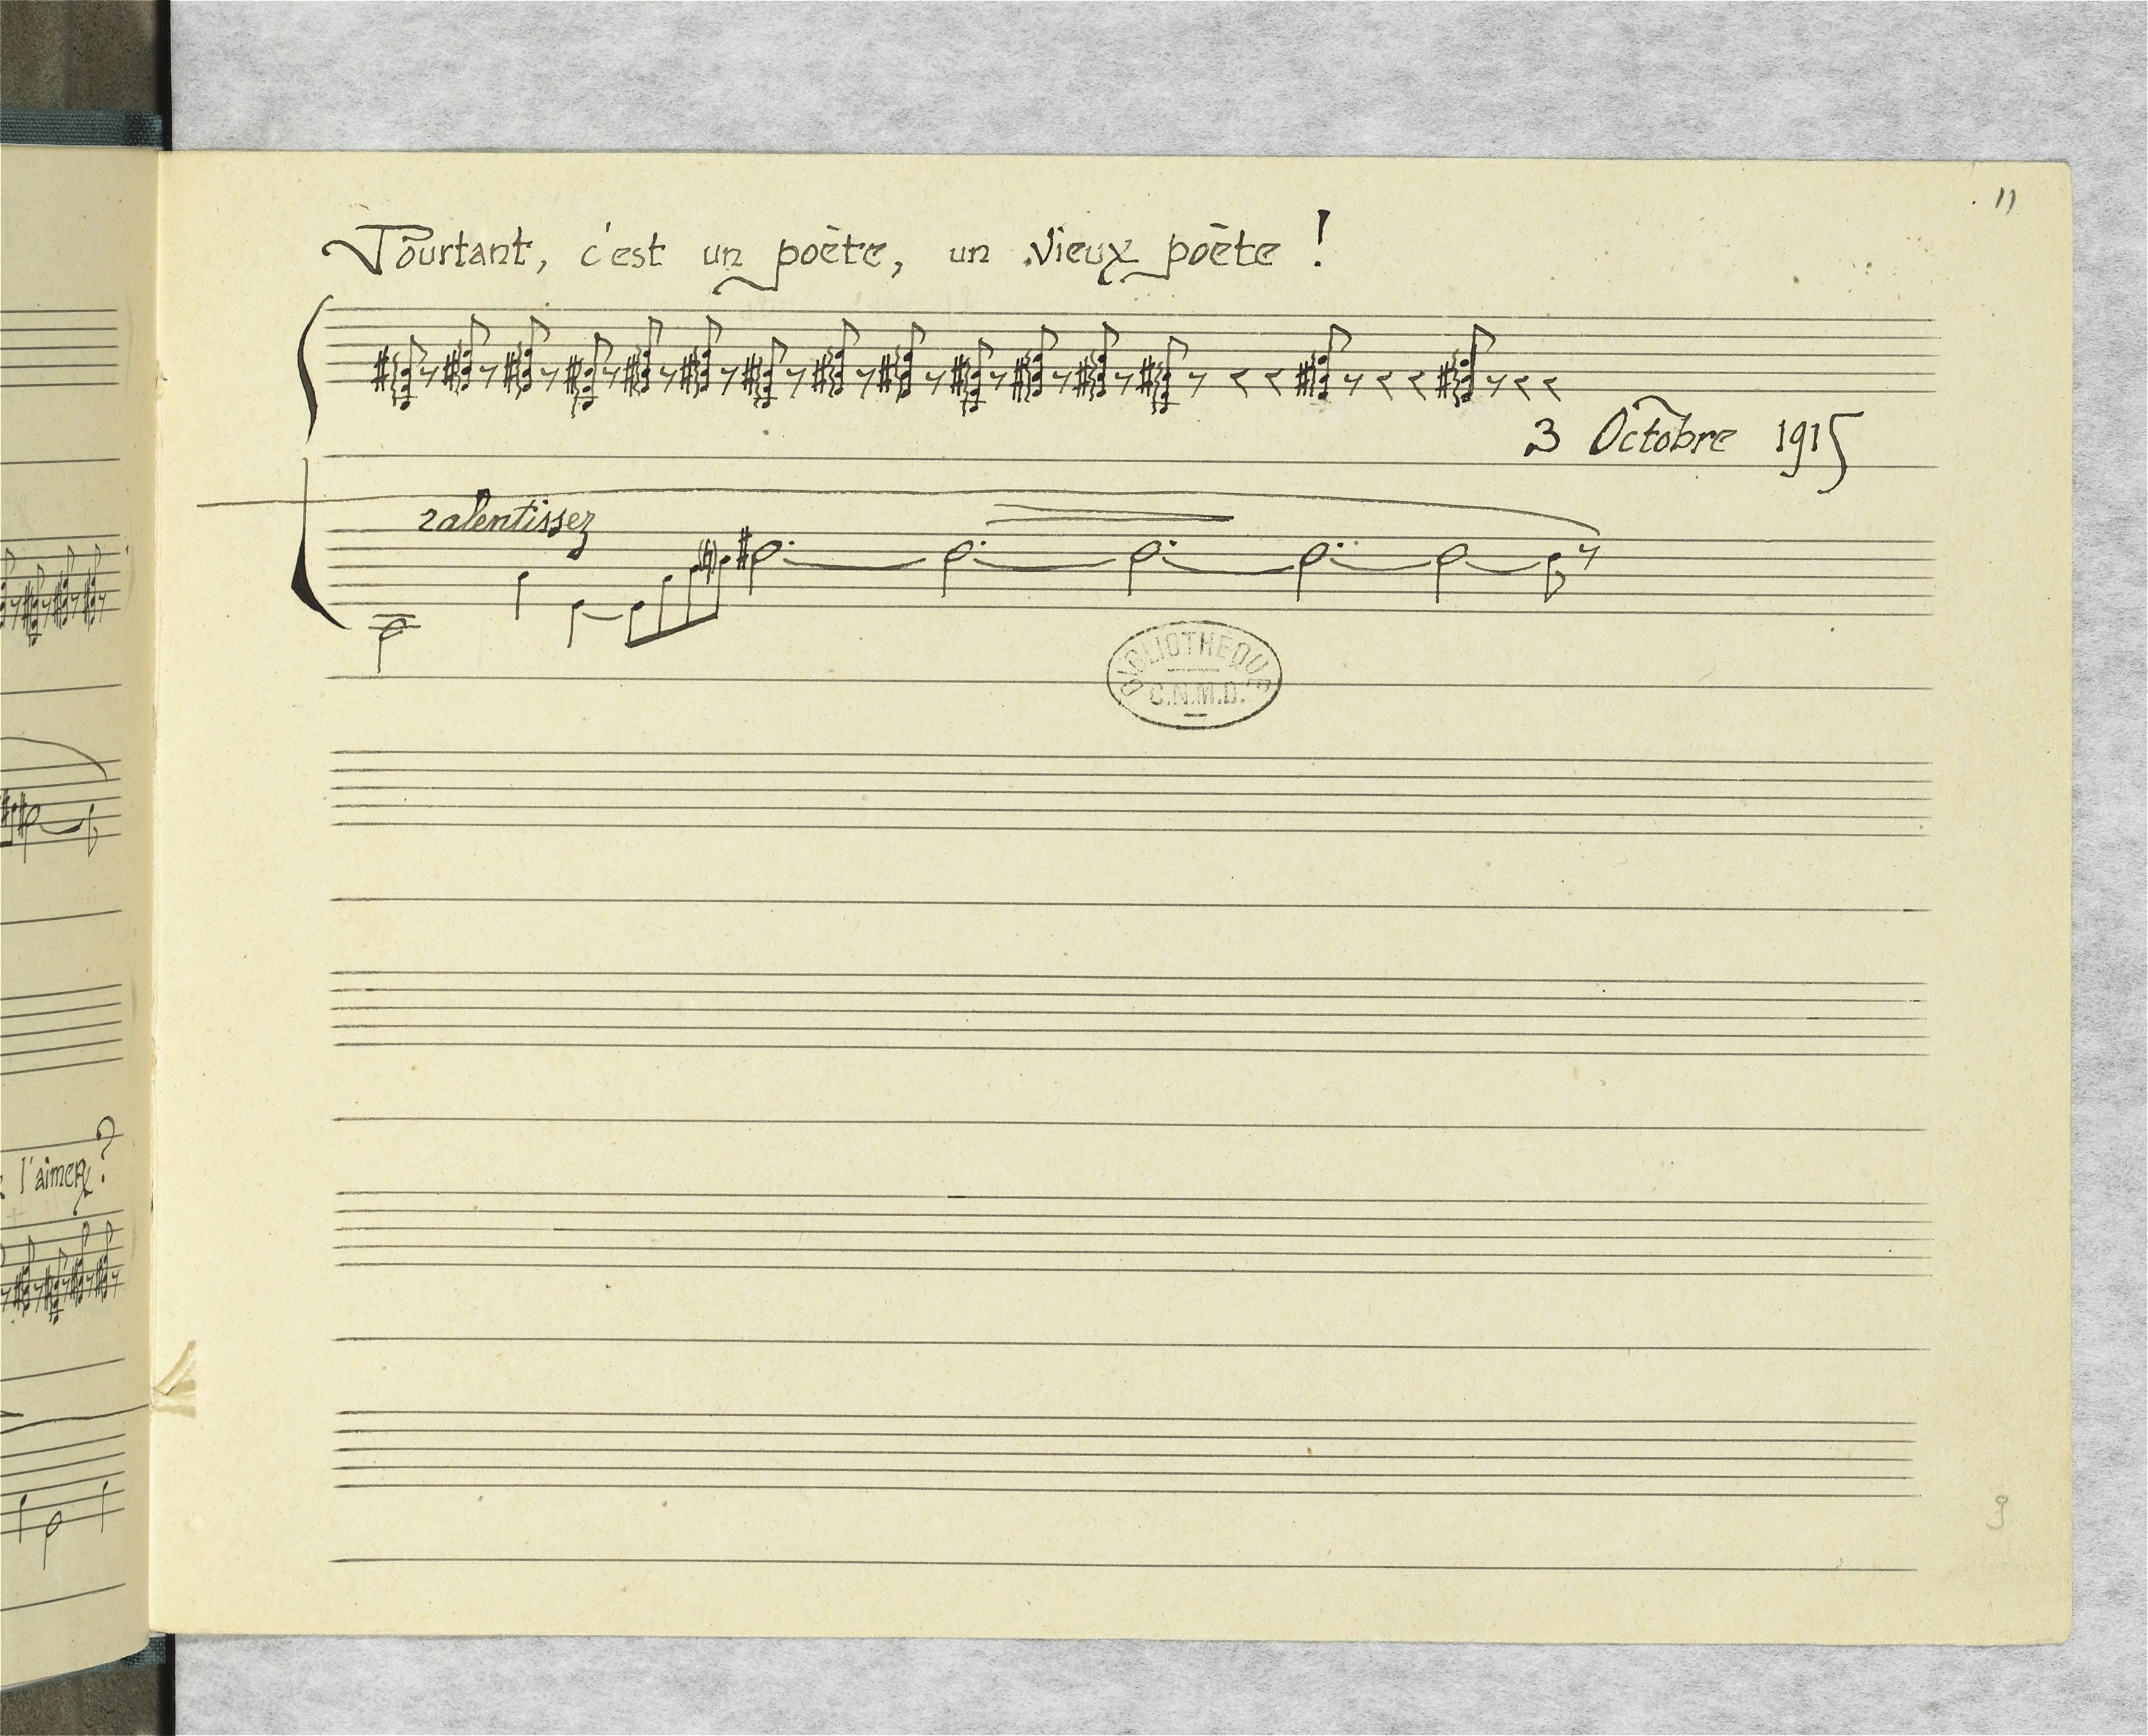 11
Pourtant, c'est un poète, un vieux poète !
3 Octobre 1915
ralentissez
BIBLIOTHÈQUE
C.N.M.D.
l'aimer ?
9